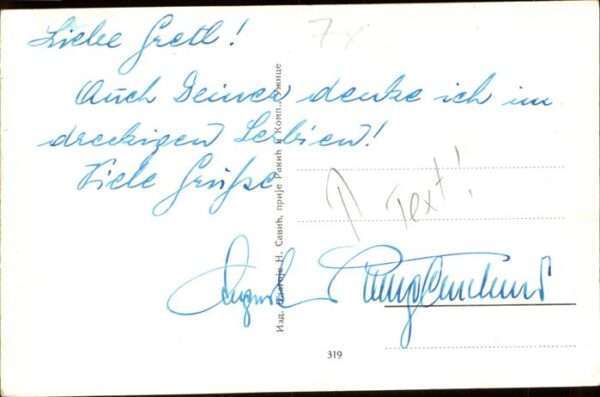 Liebe Gretl!
7x
Auch Deiner denke ich im
dreckigen Serbien!
Viele Grüße
Text!
Изд. Н. Савић, прије Ракић и Комп., Ужице
319